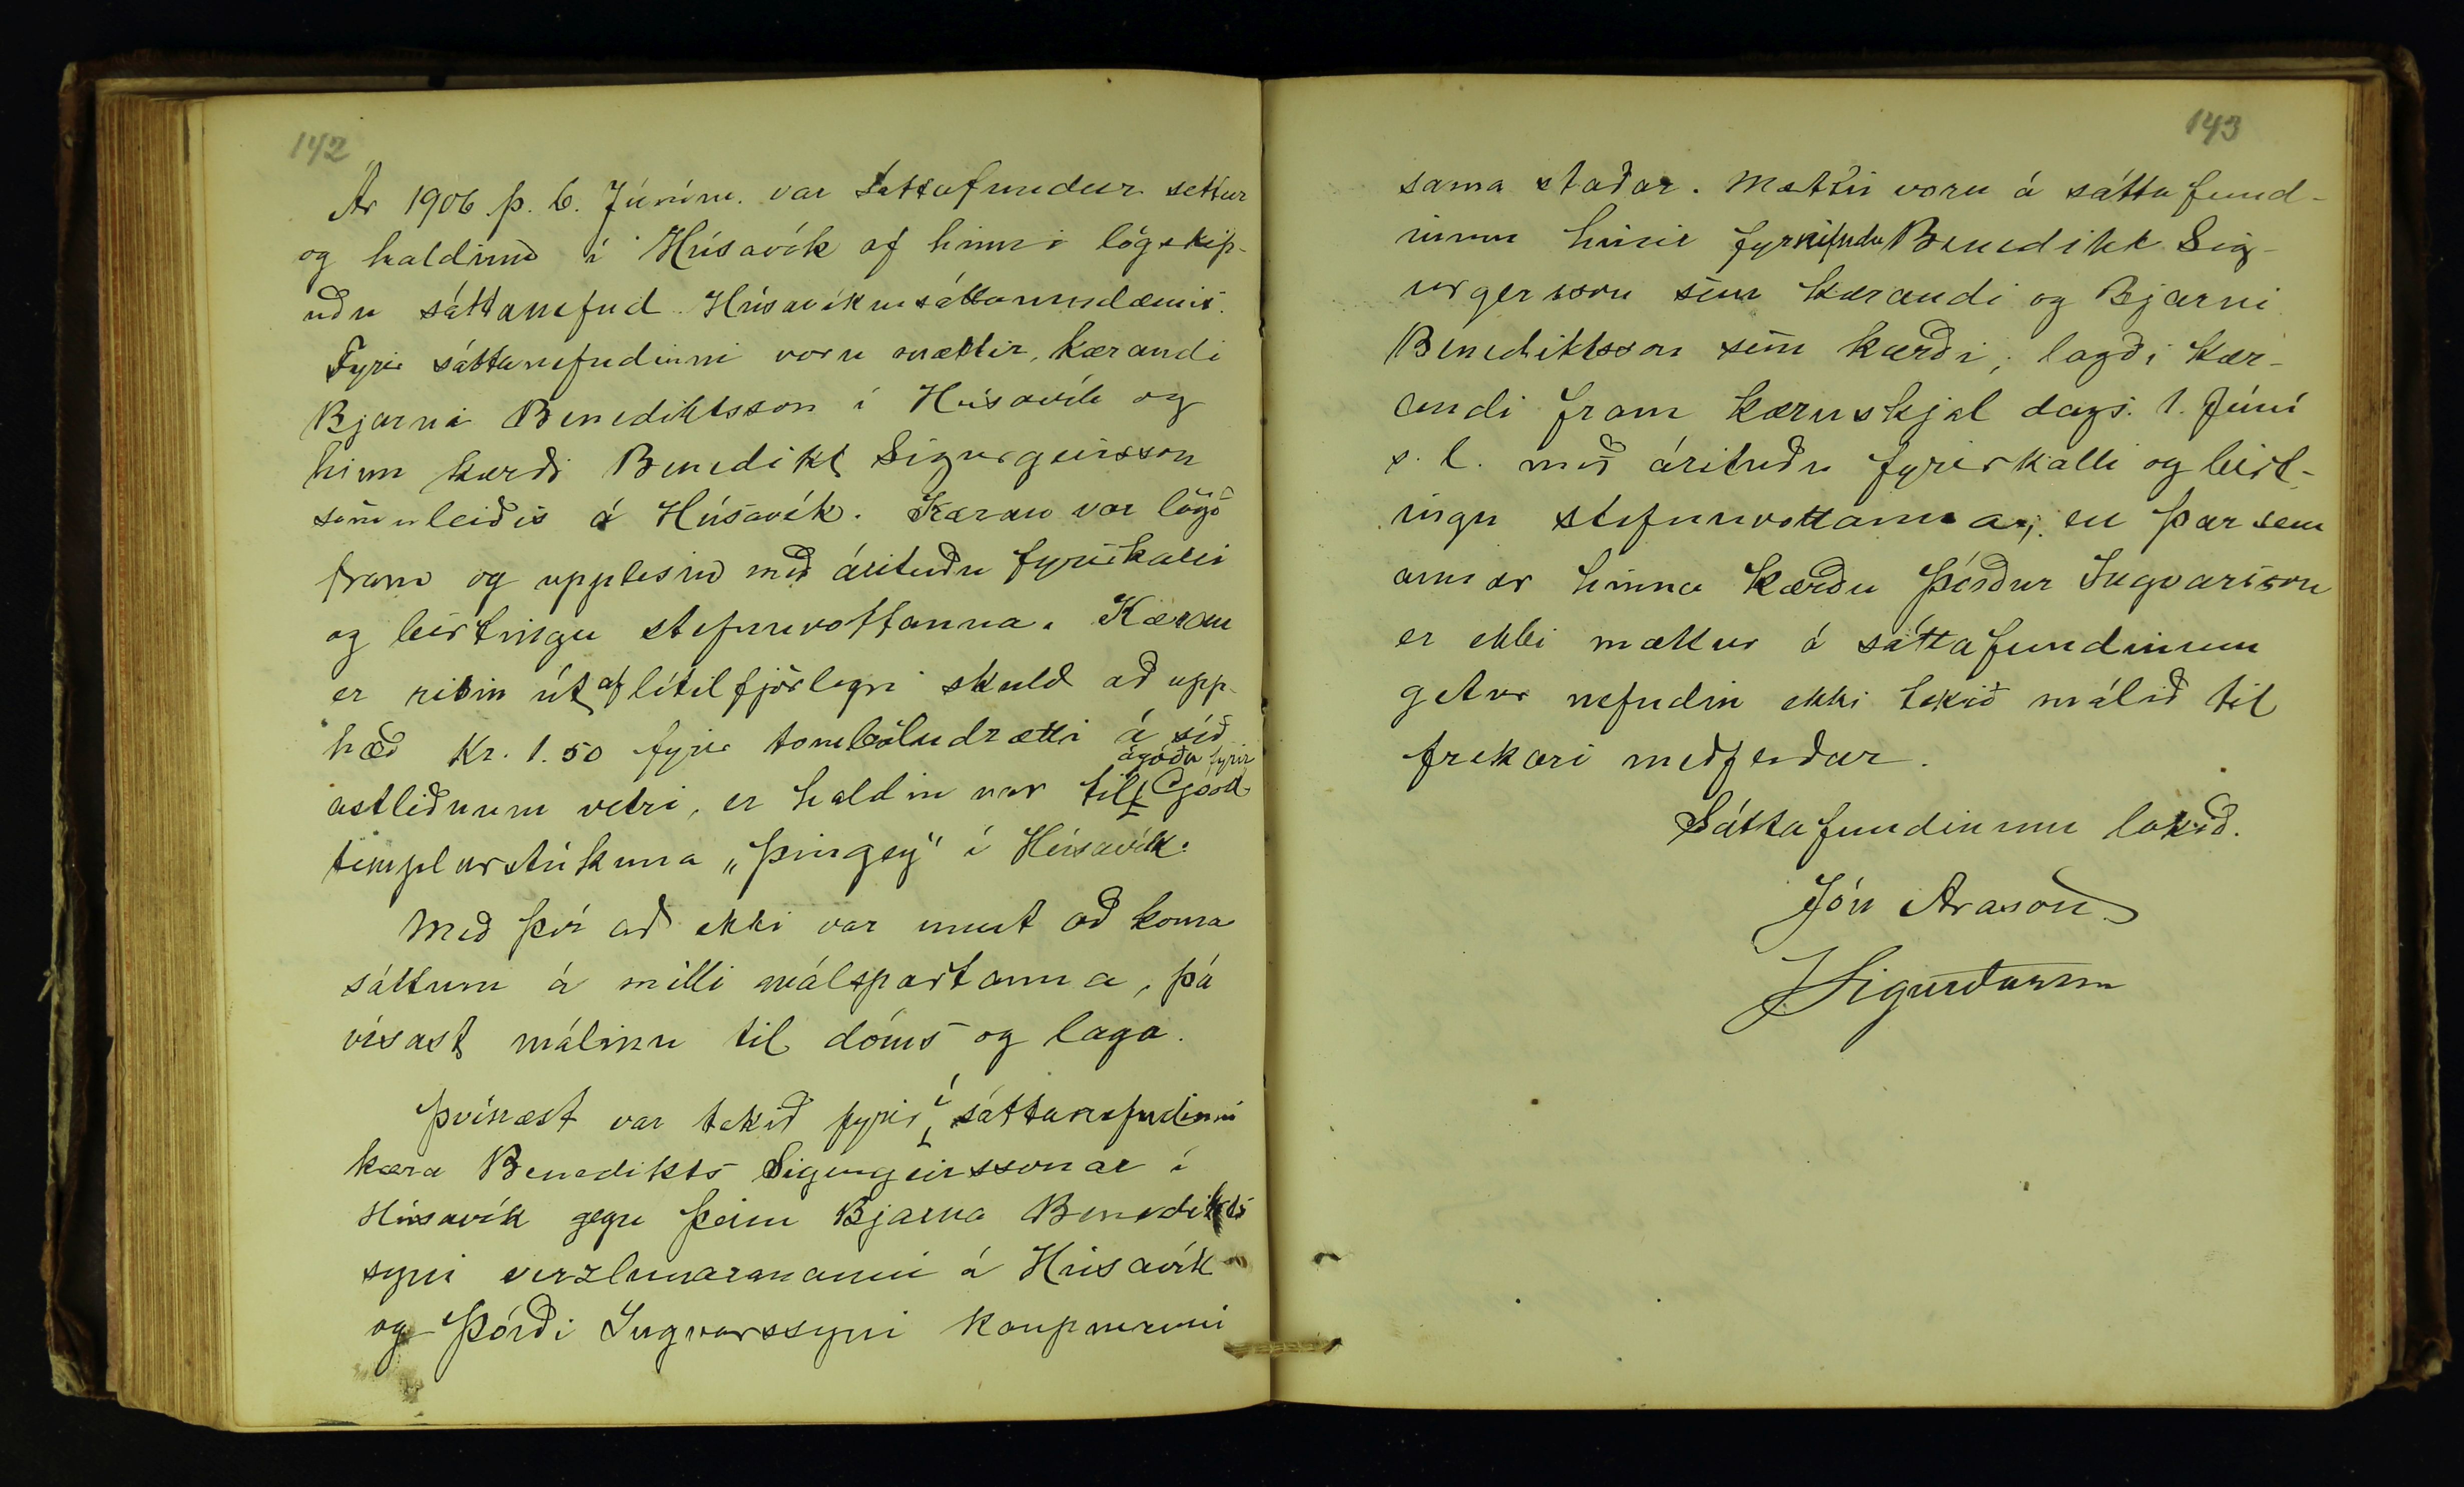 142
Ár 1906 þ. 6. Júním. var sáttafundur settur
og haldinn í Húsavík af hinni lögskip-
uðu sáttanefnd Húsavíkursáttaumdæmis.
Fyrir sáttanefndinni voru mættir, kærandi
Bjarni Benediktsson í Húsavík og
hinn kærði Benedikt Sigurgeirsson
sömuleiðis á Húsavík. Kæran var lögð
fram og upplesin með árituðu fyrirkalli
og birtingu stefnuvottanna. Kæran
er risin út af lítilfjörlegri skuld að upp-
hæð Kr. 1.50 fyrir tombóludrætti á síð
astliðnum vetri, er haldin var til ágóða fyrir Good-
templarstúkuna „Þingey" í Húsavík.
Með því að ekki var unnt að koma
sáttum á milli málspartanna, þá
vísast málinu til dóms og laga.
Þvínæst var tekið fyrir í sáttanefndinni
kæra Benedikts Sigurgeirssonar í
Húsavík gegn þeim Bjarna Benedikts
syni verzlunarmanni á Húsavík
og Þórði Ingvarssyni kaupmanni
143
sama staðar. Mættir voru á sáttafund-
inum hinir fyrnefndu Benedikt Sig-
urgersson sem kærandi og Bjarni
Benediktsson sem kærði, lagði kær-
andi fram kæruskjal dags. 1. Júní
s. l. með árituðu fyrirkalli og birt-
ingu stefnuvottanna, en þar sem
annar hinna kærðu Þórður Ingvarsson
er ekki mættur á sáttafundinum
getur nefndin ekki tekið málið til
frekari meðferðar.
Sáttafundinum lokið.
Jón Arason
J Sigurðsson